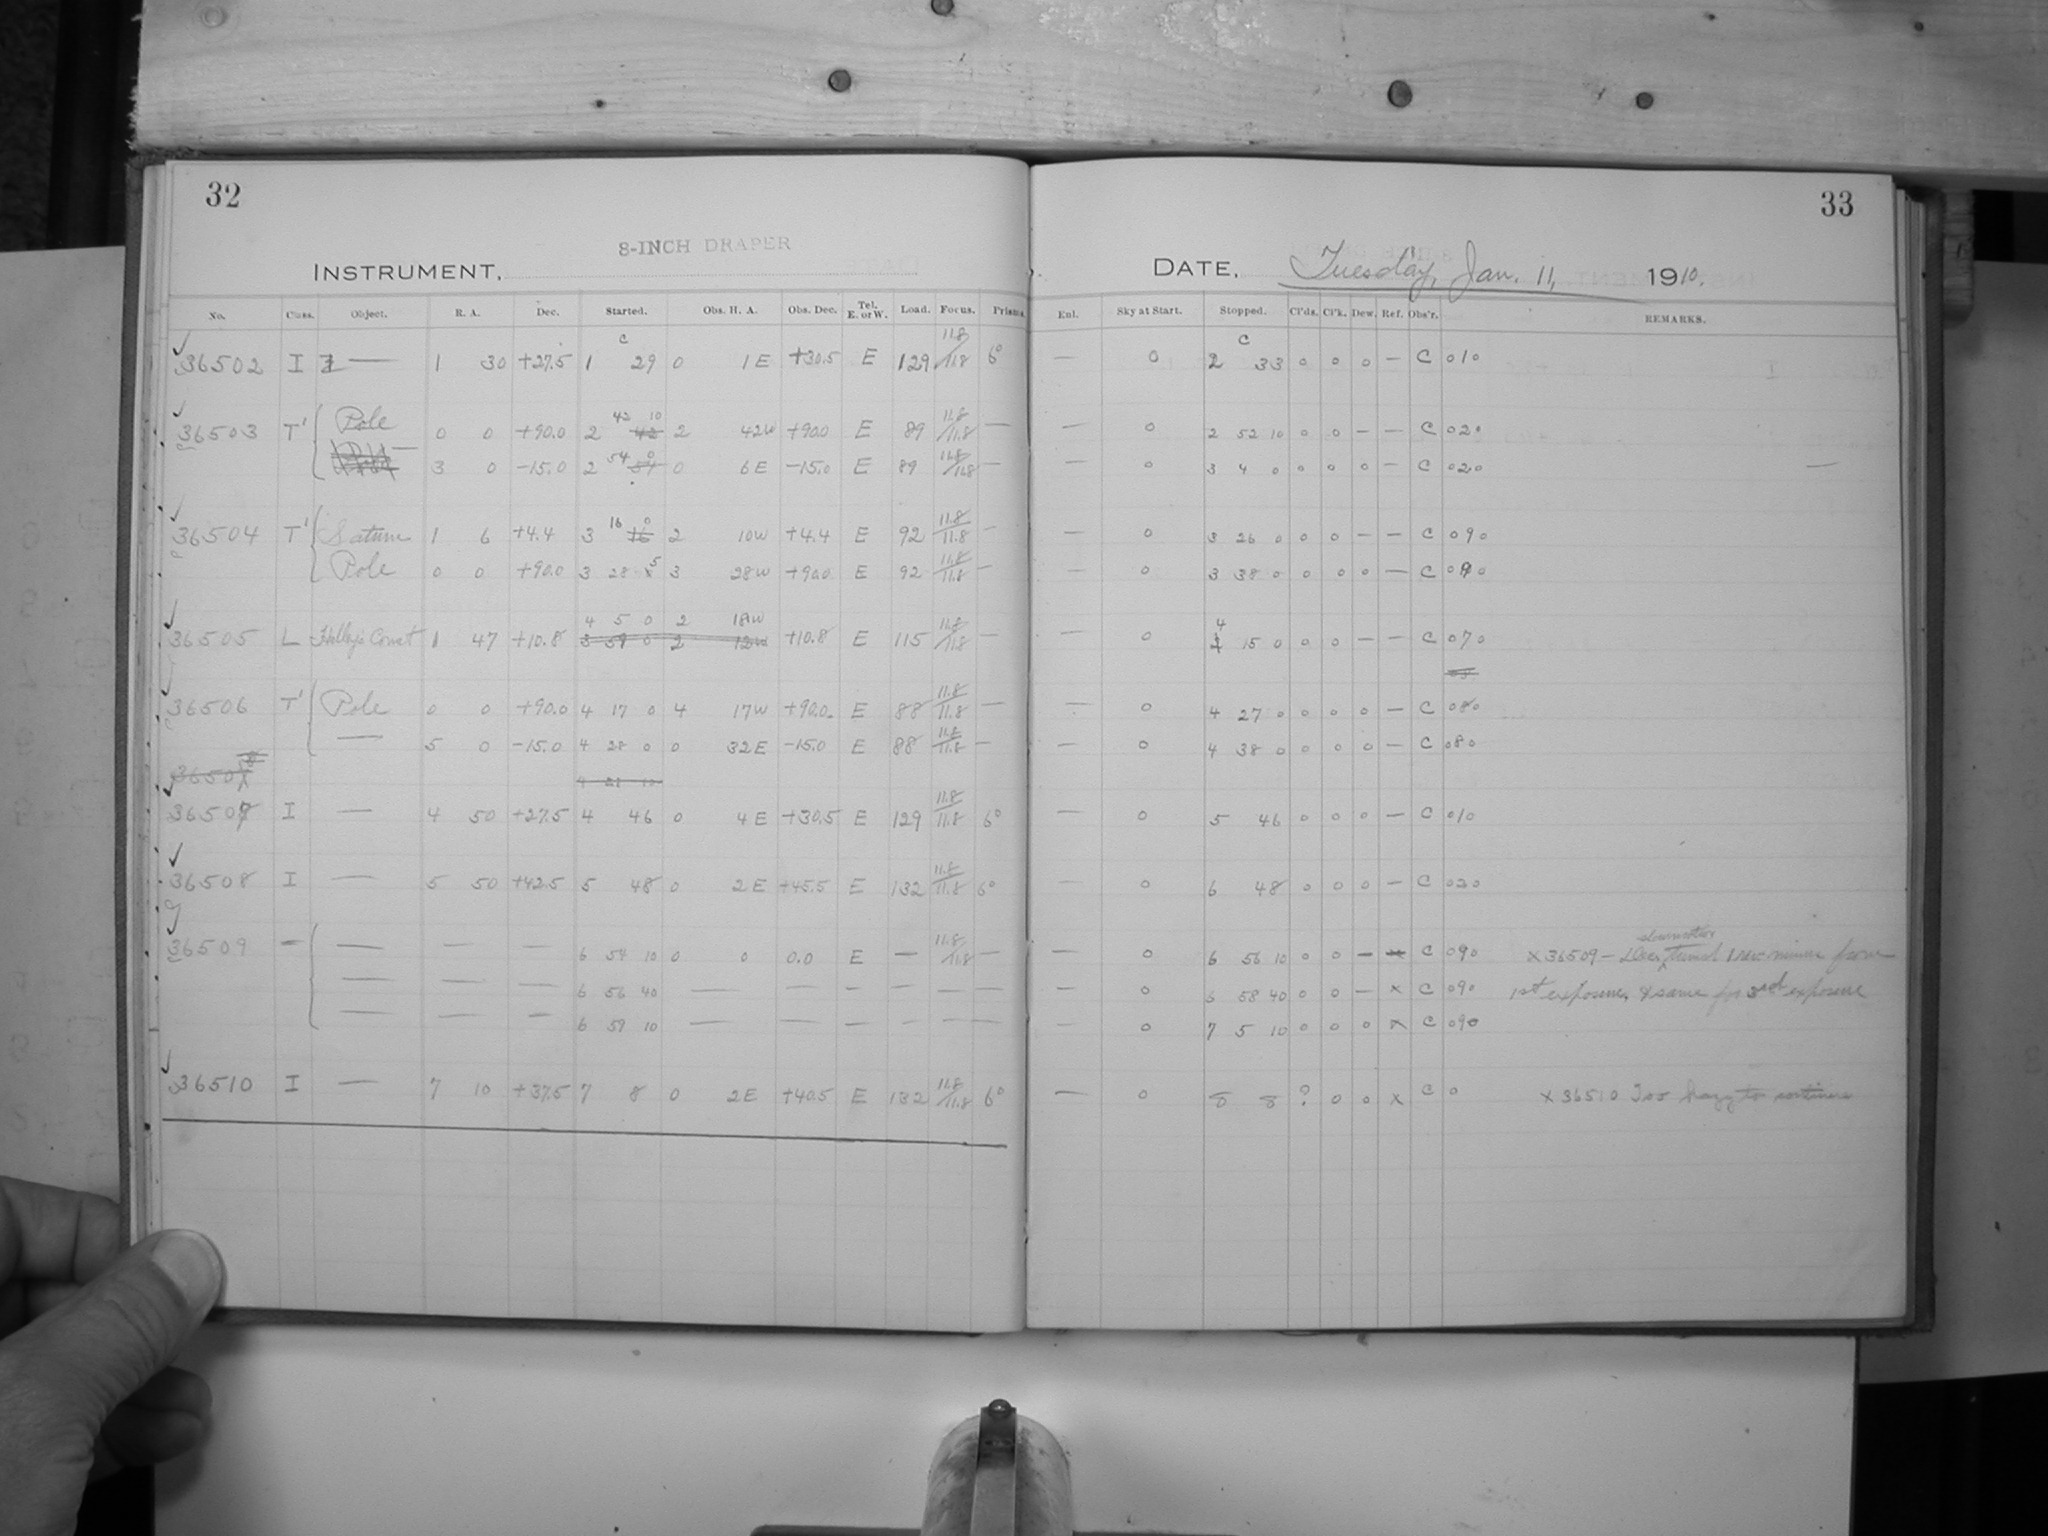 32
8-INCH DRAPER
INSTRUMENT,
No. Class. Object. R. A. Dec. Started. Obs. H. A. Obs. Dec. Tel. E. or W. Load. Focus. Prisms.
36502 I — 1 30 +27.5 1 C 29 0 1 E +30.5 E 129 11.8/11.8 6°
36503 T' Pole 0 0 +90.0 2 42 10 2 42W +90.0 E 89 11.8/11.8 —
— 3 0 -15.0 2 54 0 0 6 E -15.0 E 89 11.8/11.8 —
36504 T' Saturn 1 6 +4.4 3 16 0 2 10W +4.4 E 92 11.8/11.8 —
Pole 0 0 +90.0 3 28 5 3 28W +90.0 E 92 11.8/11.8 —
4 5 0 2 18W
36505 L Halley's Comet 1 47 +10.8 3 59 0 2 12W +10.8 E 115 11.8/11.8 —
36506 T' Pole 0 0 +90.0 4 17 0 4 17W +90.0 E 88 11.8/11.8 —
— 5 0 -15.0 4 28 0 0 32E -15.0 E 88 11.8/11.8 —
36507 I — 4 50 +27.5 4 46 0 4 E +30.5 E 129 11.8/11.8 6°
36508 I — 5 50 +42.5 5 48 0 2 E +45.5 E 132 11.8/11.8 6°
36509 — — — — 6 54 10 0 0 0.0 E — 11.8/11.8 —
— — — 6 56 40 — — — — — —
— — — 6 59 10 — — — — — —
36510 I — 7 10 +37.5 7 8 0 2E +40.5 E 132 11.8/11.8 6°
33
DATE, Tuesday, Jan. 11, 1910.
Enl. Sky at Start. Stopped. Cl'ds. Cl'k. Dew. Ref. Obs'r. REMARKS.
— 0 2 C 33 0 0 0 — C 010
— 0 2 52 10 0 0 — — C 020
— 0 3 4 0 0 0 0 — C 020 —
— 0 3 26 0 0 0 — — C 090
— 0 3 38 0 0 0 0 — C 090
— 0 4 15 0 0 0 — — C 070
— 0 4 27 0 0 0 0 — C 080
— 0 4 38 0 0 0 0 — C 080
— 0 5 46 0 0 0 — C 010
— 0 6 48 0 0 0 — C 020
— 0 6 56 10 0 0 — x C 090 x 36509 — Dec. slow motion turned 1 rev. minus from
— 0 6 58 40 0 0 — x C 090 1st exposure, & same for 3rd exposure
— 0 7 5 10 0 0 0 x C 090
— 0 8 8 ? 0 0 x C 0 x 36510 Too hazy to continue